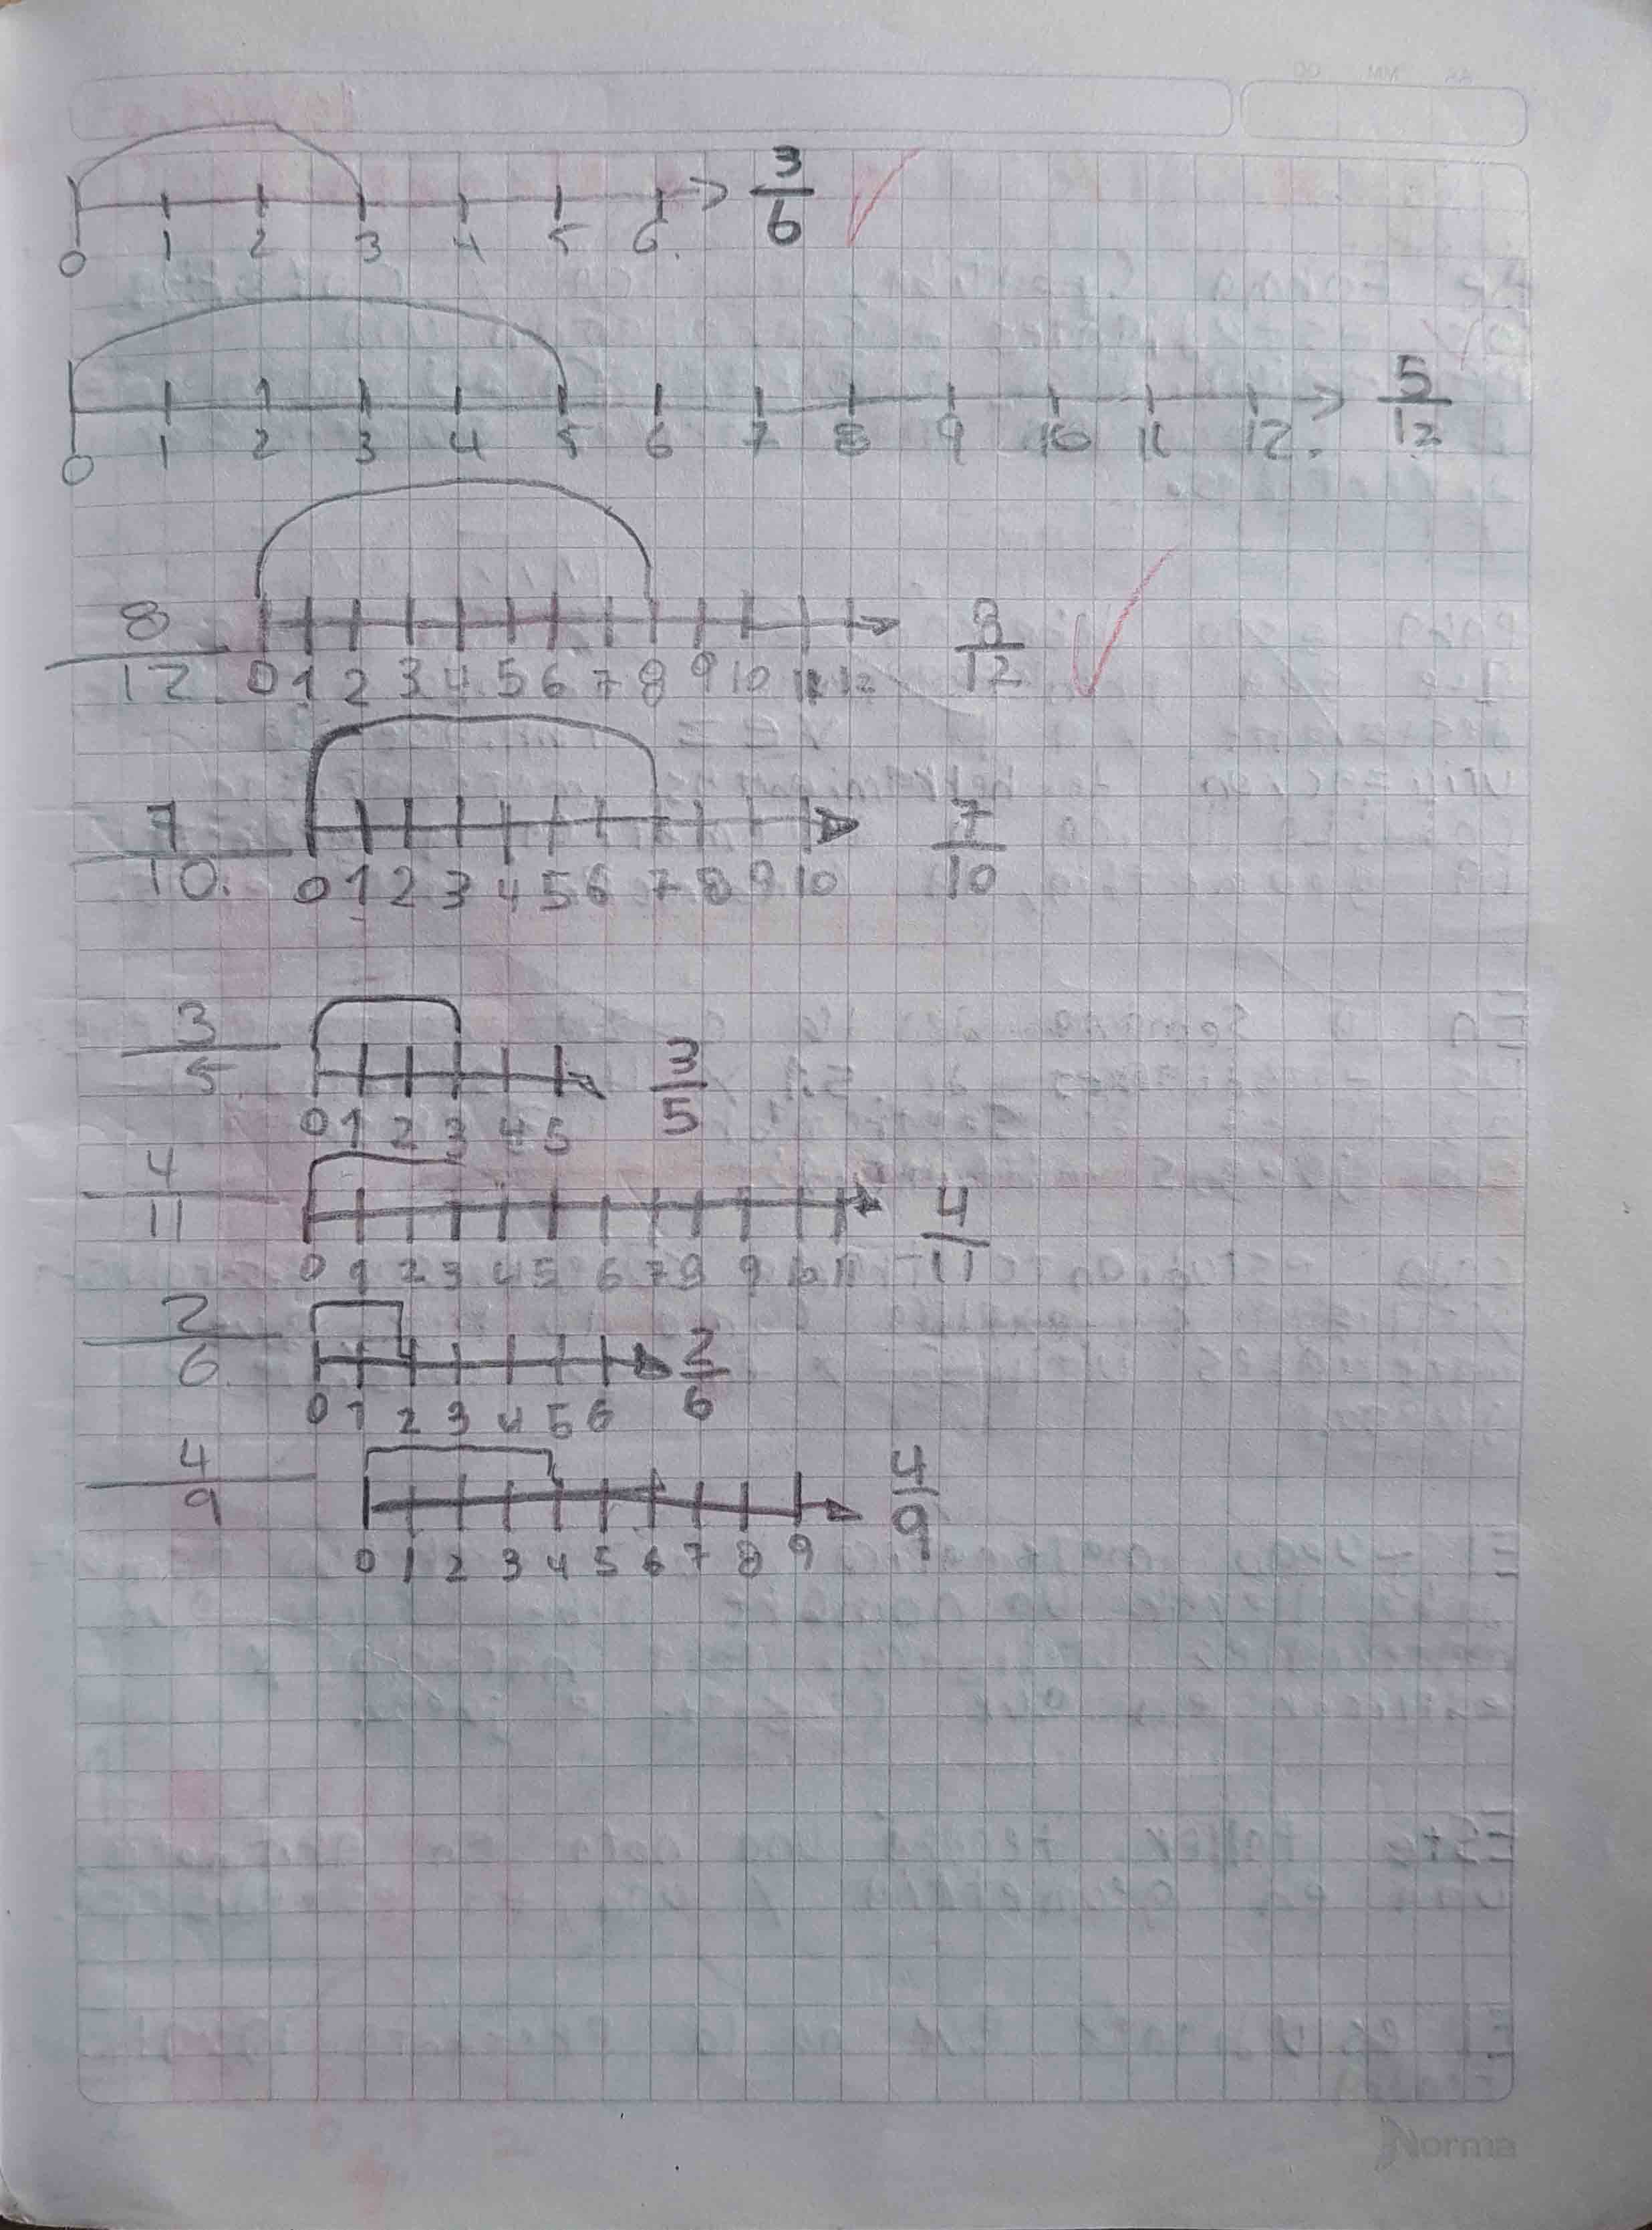 DD MM AA
3
6
0 1 2 3 4 5 6.
5
12
0 1 2 3 4 5 6 7 8 9 10 11 12.
8
12. 0 1 2 3 4 5 6 7 8 9 10 11 12
8
12
7
10. 0 1 2 3 4 5 6 7 8 9 10
7
10
3
5. 0 1 2 3 4 5
3
5
4
11 0 1 2 3 4 5 6 7 8 9 10 11
4
11
2
6. 0 1 2 3 4 5 6
2
6
4
9 0 1 2 3 4 5 6 7 8 9
4
9
Norma